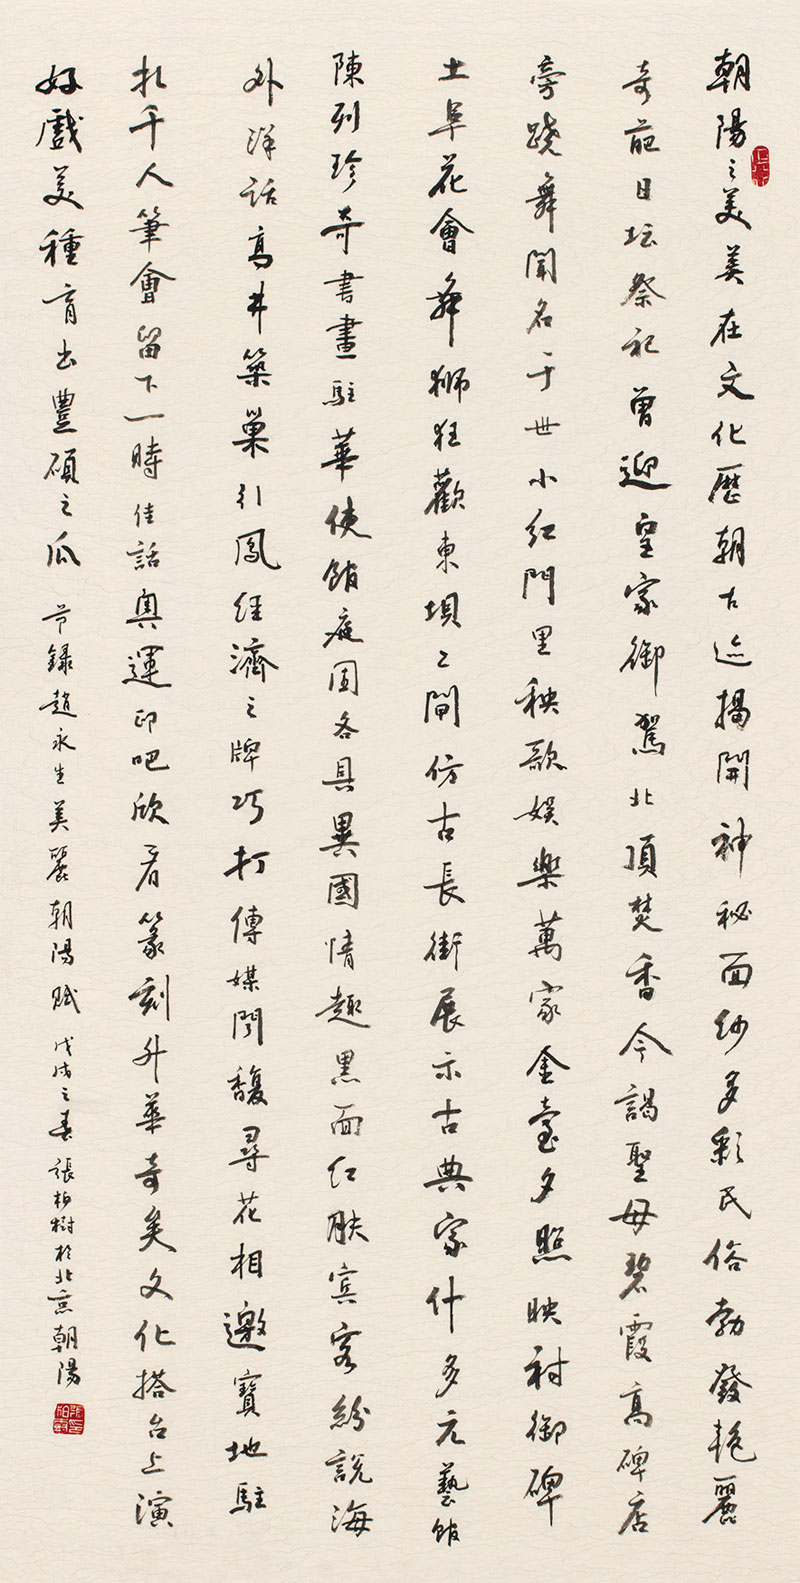 朝陽之美美在文化歷朝古迹揭開神秘面紗多彩民俗勃發艳麗
奇葩日坛祭祀曾迎皇家御駕北頂焚香今謁聖母碧霞高碑店
旁蹺舞聞名于世小紅門里秧歌娛樂萬家金臺夕照映衬御碑
土阜花會舞狮狂歡東坝之間仿古長街展示古典家什多元藝館
陳列珍奇書畫駐華使館庭园各具異國情趣黑面红肤宾客紛說海
外洋話高井築巢引鳳經濟之牌巧打傳媒聞馥尋花相邀寶地駐
扎千人筆會留下一時佳話奥運印吧欣看篆刻升華奇矣文化搭台上演
好戲美種育出豐碩之瓜 节録趙永生美麗朝陽賦 戊戌之春張柏樹於北京朝陽